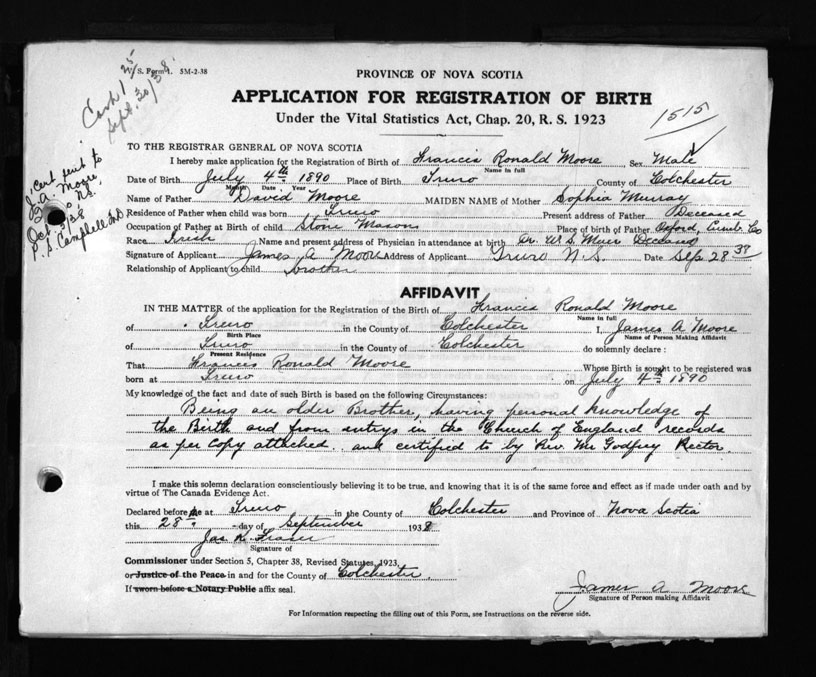 V.S. Form 1. 5M-2-38
Cash 1 25
Sept. 30/38.
PROVINCE OF NOVA SCOTIA
APPLICATION FOR REGISTRATION OF BIRTH
Under the Vital Statistics Act, Chap. 20, R. S. 1923
1515
Cert sent to
J. A. Moore
N.S.
Oct 5/38
Campbell
TO THE REGISTRAR GENERAL OF NOVA SCOTIA
I hereby make application for the Registration of Birth of Francis Ronald Moore, Sex Male
Name in full
Date of Birth July 4th 1890 Place of Birth Truro County of Colchester
Month Date Year
Name of Father David Moore MAIDEN NAME of Mother Sophia Murray
Residence of Father when child was born Truro Present address of Father Deceased
Occupation of Father at Birth of child Stone Masons Place of birth of Father Oxford, Cumb. Co
Race Irish Name and present address of Physician in attendance at birth Dr. W. S. Muir Deceased
Signature of Applicant James A Moore Address of Applicant Truro N.S. Date Sep. 28 38
Relationship of Applicant to child brother
AFFIDAVIT
IN THE MATTER of the application for Registration of the Birth of Francis Ronald Moore
Name in full
of Truro in the County of Colchester I, James A Moore
Birth Place Name of Person Making Affidavit
of Truro in the County of Colchester do solemnly declare :
Present Residence
That Francis Ronald Moore Whose Birth is sought to be registered was
born at Truro on July 4th 1890
My knowledge of the fact and date of such Birth is based on the following Circumstances:
Being an older Brother, having personal knowledge of
the Birth and from entrys in the Church of England records
as per Copy attached and certified to by Rev. Mr Godfrey Rector.
I make this solemn declaration conscientiously believing it to be true, and knowing that it is of the same force and effect as if made under oath and by
virtue of The Canada Evidence Act.
Declared before me at Truro in the County of Colchester and Province of Nova Scotia
this 28th day of September 1938
Jas. K. Fraser
Signature of
Commissioner under Section 5, Chapter 38, Revised Statutes, 1923,
or Justice of the Peace in and for the County of Colchester.
If sworn before a Notary Public affix seal.
James A Moore
Signature of Person making Affidavit
For Information respecting the filling out of this Form, see Instructions on the reverse side.